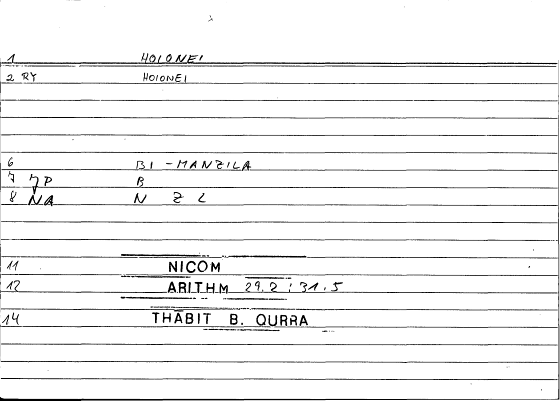 1 HOIONEI
2 RY HOIONEI
6 BI - MANZILA
7 7P B
8 NA N Z L
11 NICOM
12 ARITHM 29.2 : 31.5
14 THĀBIT B. QURRA